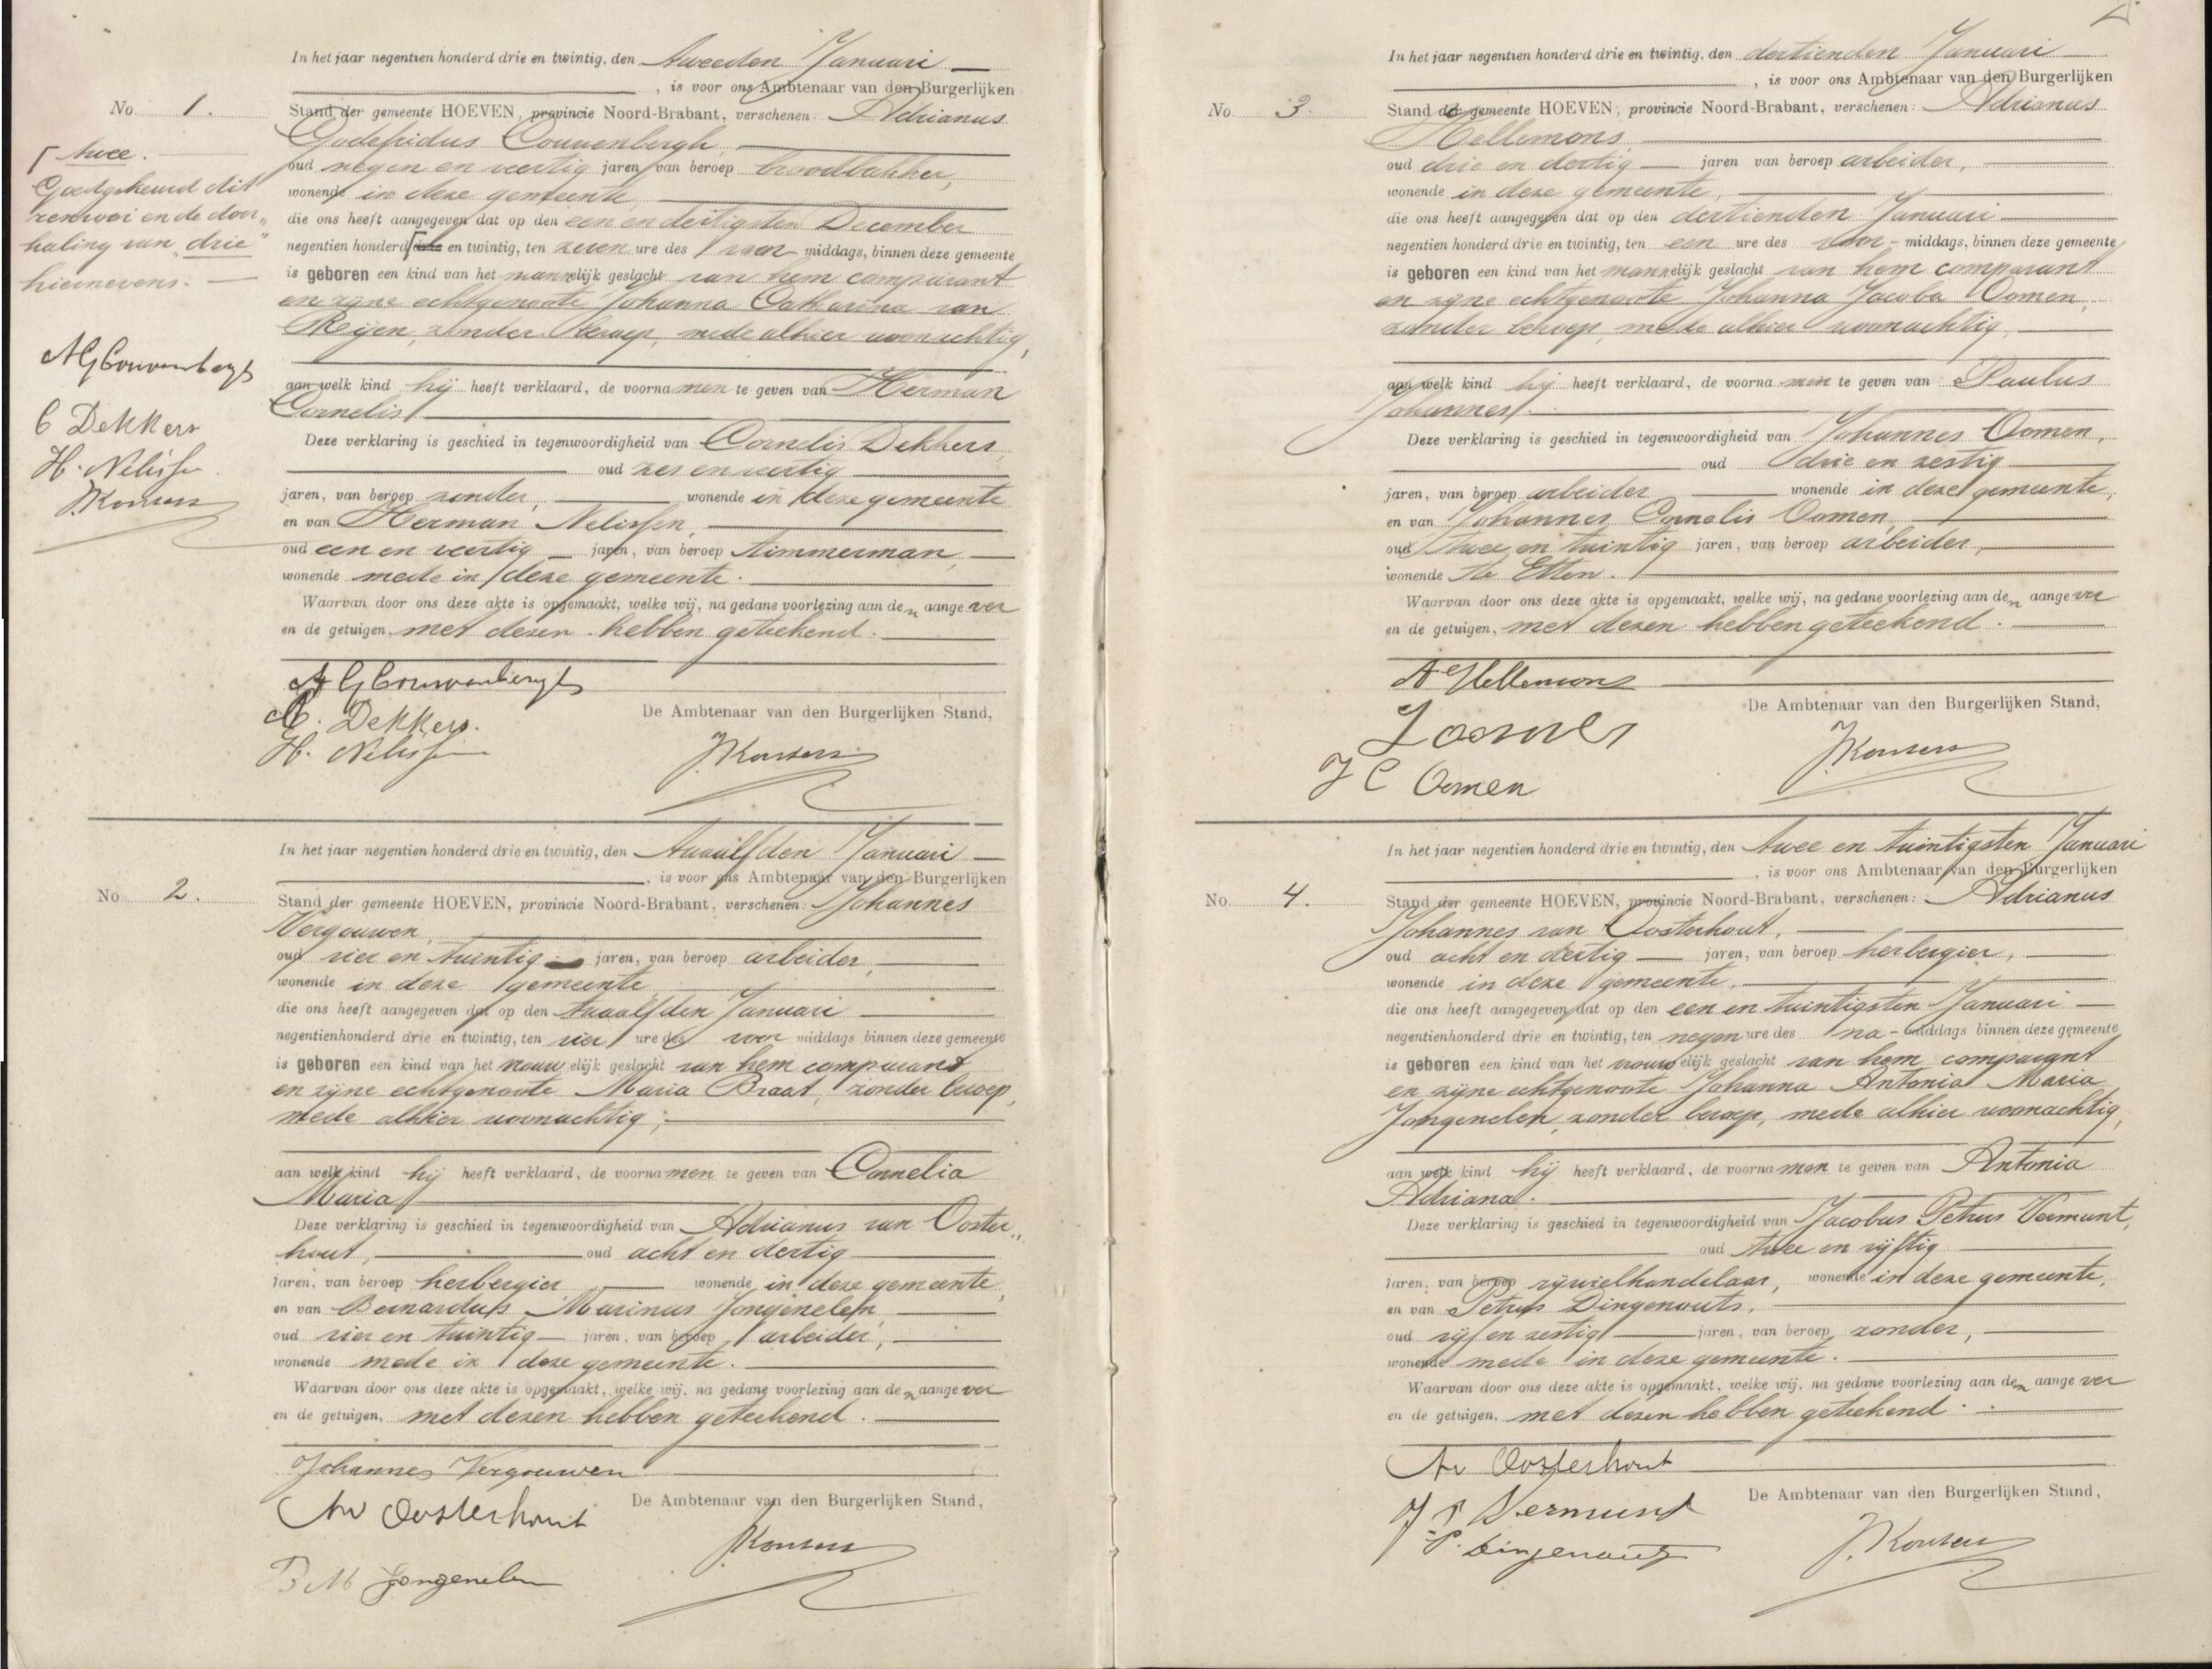 In het jaar negentien honderd drie en twintig, den tweeden Januari
, is voor ons Ambtenaar van den Burgerlijken
No. 1.
Stand der gemeente HOEVEN, provincie Noord-Brabant, verschenen: Adrianus
Godefridus Couwenbergh,
oud negen en veertig jaren, van beroep broodbakker,
wonende in deze gemeente,
die ons heeft aangegeven dat op den een en dertigsten December
negentien honderd drie en twintig, ten zeven ure des voor middags, binnen deze gemeente
is geboren een kind van het mannelijk geslacht van hem comparant
en zijne echtgenoote Johanna Catharina van
Reijen, zonder beroep, mede alhier woonachtig,
aan welk kind hij heeft verklaard, de voornamen te geven van Herman
Cornelis
Deze verklaring is geschied in tegenwoordigheid van Cornelis Dekkers,
oud zes en veertig
jaren, van beroep zonder, wonende in deze gemeente
en van Herman Nelissen,
oud een en veertig jaren, van beroep timmerman,
wonende mede in deze gemeente.
Waarvan door ons deze akte is opgemaakt, welke wij, na gedane voorlezing aan den aangever
en de getuigen, met dezen hebben geteekend.
AGCouwenbergh
C. Dekkers.
H. Nelissen
De Ambtenaar van den Burgerlijken Stand,
twee.
Goedgekeurd dit
renvooi en de door„
haling van „drie"
hiernevens.
AGCouwenbergh
C Dekkers
H. Nelissen
In het jaar negentien honderd drie en twintig, den twaalfden Januari
, is voor ons Ambtenaar van den Burgerlijken
No. 2.
Stand der gemeente HOEVEN, provincie Noord-Brabant, verschenen: Johannes
Vergouwen,
oud vier en twintig jaren, van beroep arbeider,
wonende in deze gemeente
die ons heeft aangegeven dat op den twaalfden Januari
negentienhonderd drie en twintig, ten vier ure des voor middags binnen deze gemeente
is geboren een kind van het vrouwelijk geslacht van hem comparant
en zijne echtgenoote Maria Braat, zonder beroep,
mede alhier woonachtig,
aan welk kind hij heeft verklaard, de voornamen te geven van Cornelia
Maria
Deze verklaring is geschied in tegenwoordigheid van Adrianus van Ooster„
hout, oud acht en dertig
jaren, van beroep herbergier, wonende in deze gemeente,
en van Bernardus Marinus Jongenelen,
oud vier en twintig jaren, van beroep arbeider,
wonende mede in deze gemeente.
Waarvan door ons deze akte is opgemaakt, welke wij, na gedane voorlezing aan den aangever
en de getuigen, met dezen hebben geteekend.
Johannes Vergouwen
Av Oosterhout
BM Jongenelen
De Ambtenaar van den Burgerlijken Stand,
In het jaar negentien honderd drie en twintig, den dertienden Januari
, is voor ons Ambtenaar van den Burgerlijken
No. 3.
Stand der gemeente HOEVEN, provincie Noord-Brabant, verschenen: Adrianus
Hellemons,
oud drie en dertig jaren van beroep arbeider,
wonende in deze gemeente,
die ons heeft aangegeven dat op den dertienden Januari
negentien honderd drie en twintig, ten een ure des voor- middags, binnen deze gemeente
is geboren een kind van het mannelijk geslacht van hem comparant
en zijne echtgenoote Johanna Jacoba Oomen,
zonder beroep, mede alhier woonachtig,
aan welk kind hij heeft verklaard, de voornamen te geven van Paulus
Johannes.
Deze verklaring is geschied in tegenwoordigheid van Johannes Oomen,
oud drie en zestig
jaren, van beroep arbeider, wonende in deze gemeente,
en van Johannes Cornelis Oomen,
oud twee en twintig jaren, van beroep arbeider,
wonende te Etten.
Waarvan door ons deze akte is opgemaakt, welke wij, na gedane voorlezing aan den aangever
en de getuigen, met dezen hebben geteekend.
A Hellemons
J C Oomen
De Ambtenaar van den Burgerlijken Stand,
In het jaar negentien honderd drie en twintig, den twee en twintigsten Januari
, is voor ons Ambtenaar van den Burgerlijken
No. 4.
Stand der gemeente HOEVEN, provincie Noord-Brabant, verschenen: Adrianus
Johannes van Oosterhout,
oud acht en dertig jaren, van beroep herbergier,
wonende in deze gemeente,
die ons heeft aangegeven dat op den een en twintigsten Januari
negentienhonderd drie en twintig, ten negen ure des na- middags binnen deze gemeente
is geboren een kind van het vrouwelijk geslacht van hem comparant
en zijne echtgenoote Johanna Antonia Maria
Jongenelen, zonder beroep, mede alhier woonachtig,
aan welk kind hij heeft verklaard, de voornamen te geven van Antonia
Adriana.
Deze verklaring is geschied in tegenwoordigheid van Jacobus Petrus Vermunt,
oud twee en vijftig
jaren, van beroep rijwielhandelaar, wonende in deze gemeente,
en van Petrus Dingenouts,
oud vijf en zestig jaren, van beroep zonder,
wonende mede in deze gemeente.
Waarvan door ons deze akte is opgemaakt, welke wij, na gedane voorlezing aan den aangever
en de getuigen, met dezen hebben geteekend.
Av Oosterhout
J P Vermunt
P. Dingenouts
De Ambtenaar van den Burgerlijken Stand,